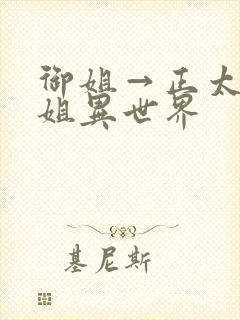 御姐→正太
姐異世界
基尼斯